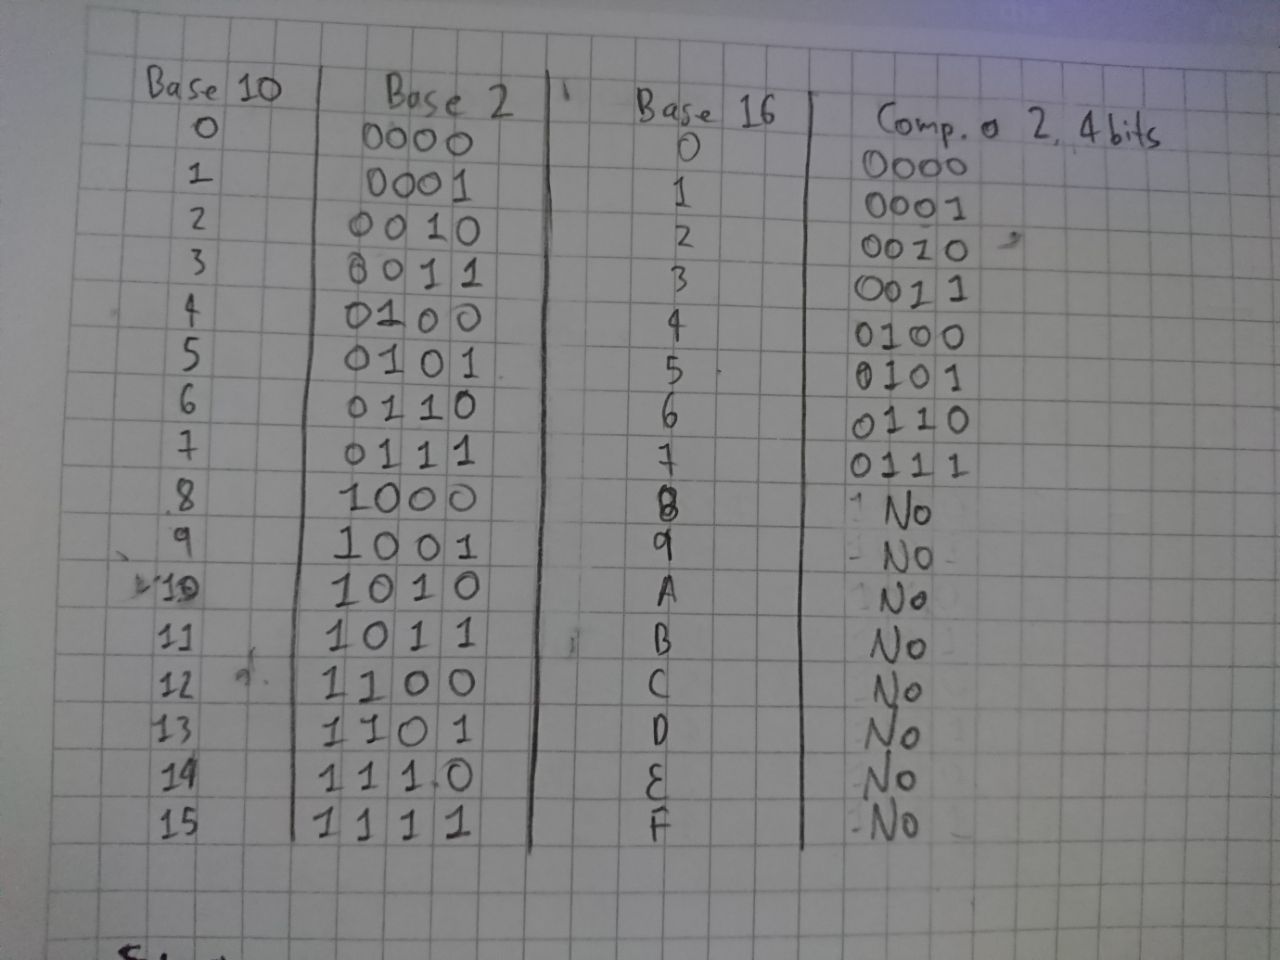 Base 10 Base 2 Base 16 Comp. a 2, 4 bits
0 0000 0 0000
1 0001 1 0001
2 0010 2 0010
3 0011 3 0011
4 0100 4 0100
5 0101 5 0101
6 0110 6 0110
7 0111 7 0111
8 1000 8 No
9 1001 9 No
10 1010 A No
11 1011 B No
12 1100 C No
13 1101 D No
14 1110 E No
15 1111 F No